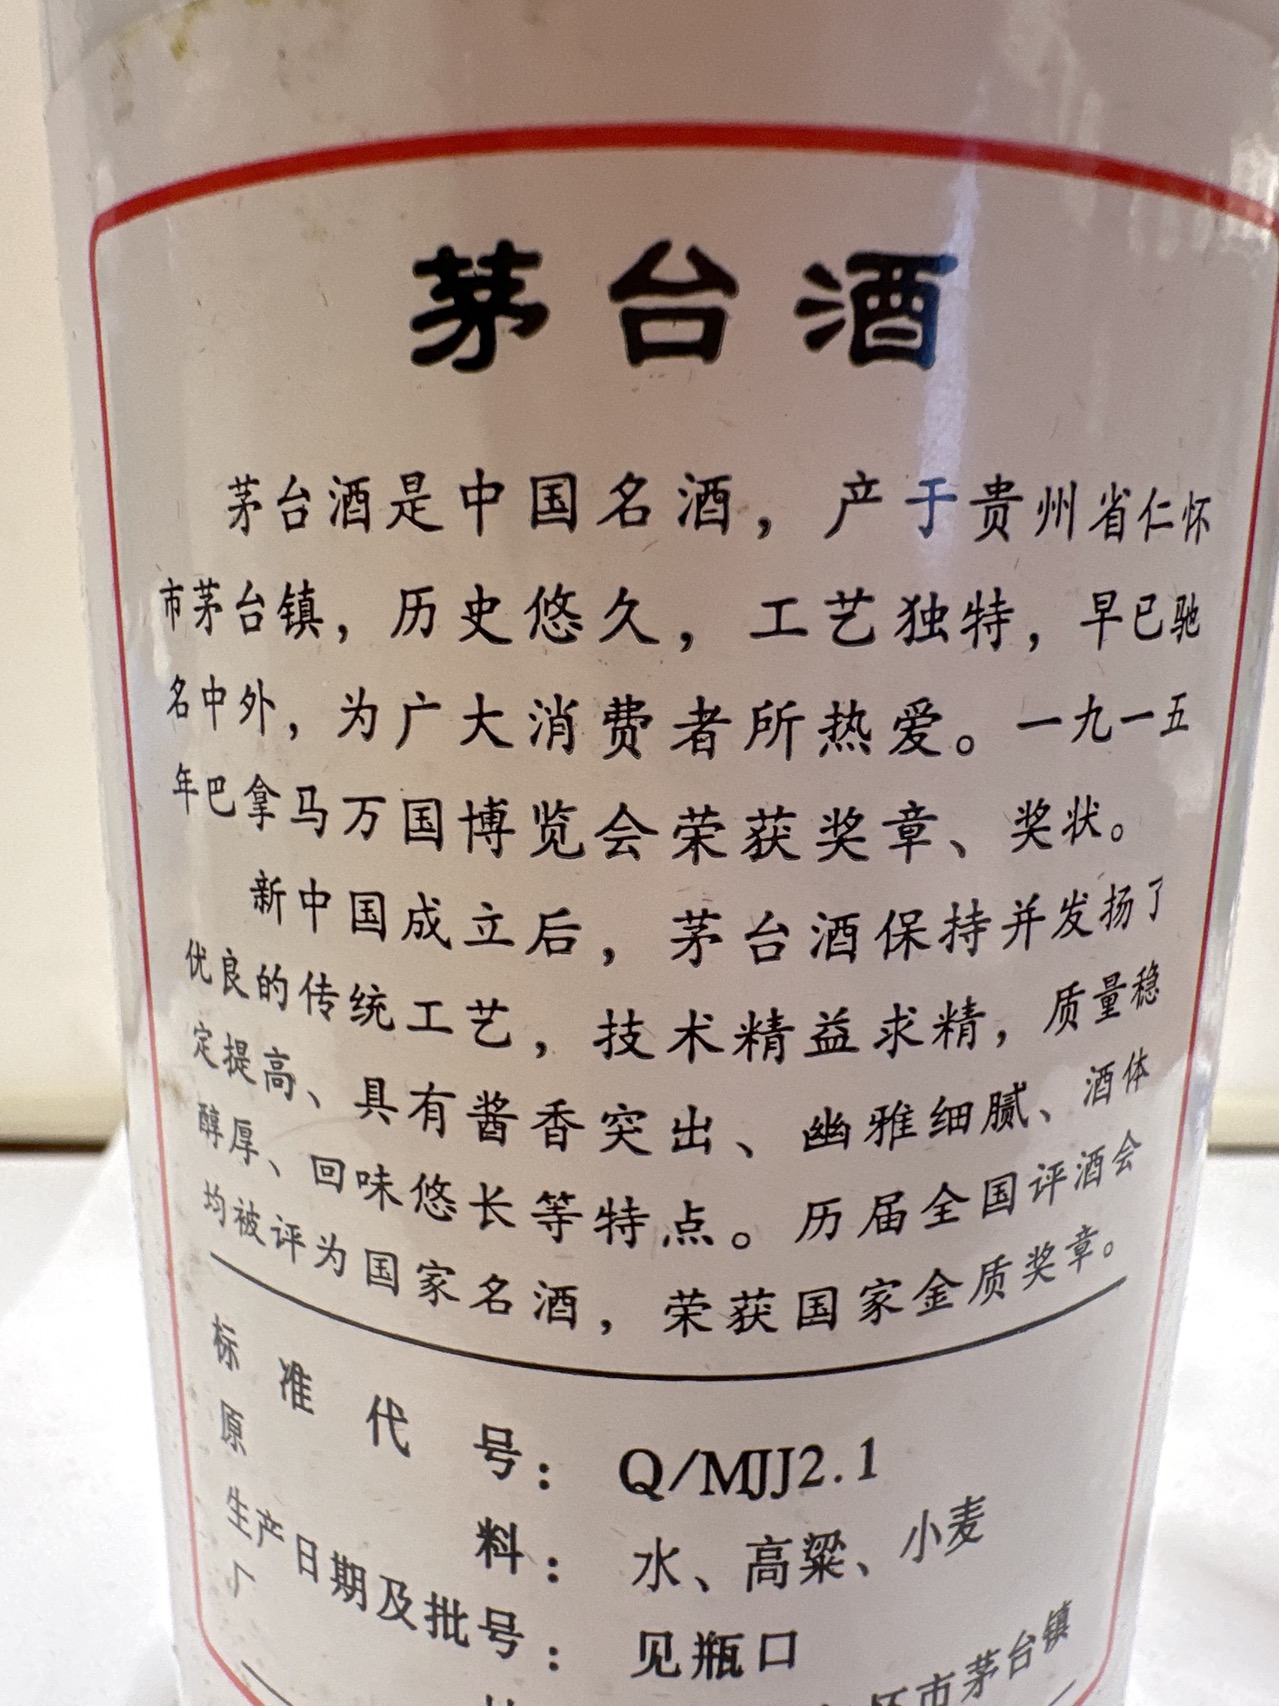 茅台酒
茅台酒是中国名酒，产于贵州省仁怀
市茅台镇，历史悠久，工艺独特，早已驰
名中外，为广大消费者所热爱。一九一五
年巴拿马万国博览会荣获奖章、奖状。
新中国成立后，茅台酒保持并发扬了
优良的传统工艺，技术精益求精，质量稳
定提高、具有酱香突出、幽雅细腻、酒体
醇厚、回味悠长等特点。历届全国评酒会
均被评为国家名酒，荣获国家金质奖章。
标准代号：Q/MJJ2.1
原料：水、高粱、小麦
生产日期及批号：见瓶口
厂 怀市茅台镇